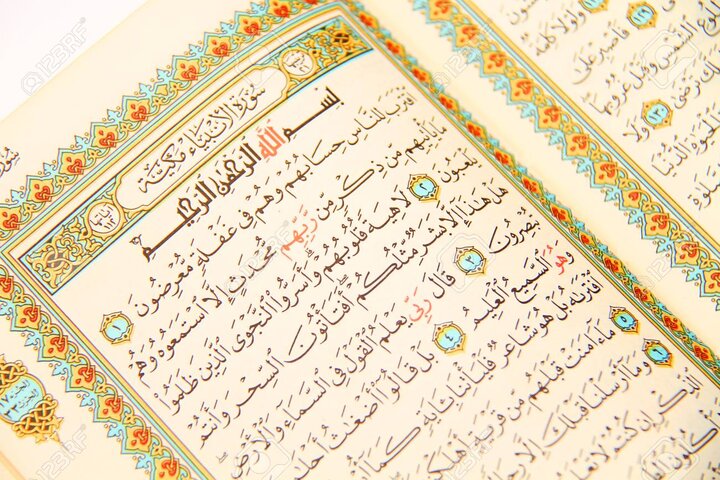 سُورَةُ الْأَنْبِيَاءِ مَكِّيَّةٌ
بِسْمِ اللَّهِ الرَّحْمَٰنِ الرَّحِيمِ
اقْتَرَبَ لِلنَّاسِ حِسَابُهُمْ وَهُمْ فِي غَفْلَةٍ مُعْرِضُونَ ١
مَا يَأْتِيهِمْ مِنْ ذِكْرٍ مِنْ رَبِّهِمْ مُحْدَثٍ إِلَّا اسْتَمَعُوهُ وَهُمْ
يَلْعَبُونَ ٢ لَاهِيَةً قُلُوبُهُمْ وَأَسَرُّوا النَّجْوَى الَّذِينَ ظَلَمُوا
هَلْ هَذَا إِلَّا بَشَرٌ مِثْلُكُمْ أَفَتَأْتُونَ السِّحْرَ وَأَنْتُمْ
تُبْصِرُونَ ٣ قَالَ رَبِّي يَعْلَمُ الْقَوْلَ فِي السَّمَاءِ وَالْأَرْضِ
وَهُوَ السَّمِيعُ الْعَلِيمُ ٤ بَلْ قَالُوا أَضْغَاثُ
افْتَرَاهُ بَلْ هُوَ شَاعِرٌ فَلْيَأْتِنَا بِآيَةٍ كَمَا ٥
مَا آمَنَتْ قَبْلَهُمْ مِنْ قَرْيَةٍ ٦
وَمَا أَرْسَلْنَا قَبْلَكَ إِلَّا
الذِّكْرِ إِنْ كُنْتُمْ لَا
وَلَوْلَا كَلِمَةٌ
فَاصْبِرْ عَلَى
الشَّمْسِ وَقَبْلَ غُرُوبِهَا
تَرْضَى ١٣٠ وَلَا
الْحَيَوةِ الدُّنْيَا
123RF